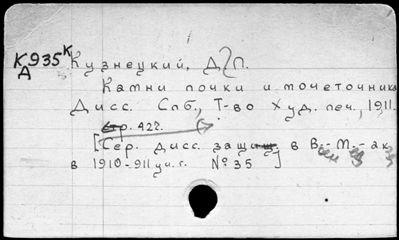 К935К Кузнецкий, Д. П.
А
Камни почки и мочеточника
Дисс. Спб., Т-во Худ. печ., 1911.
стр. 427.
[Сер. дисс. защищ. в В.-М.-ак.
в 1910-911 уч. г. № 35]